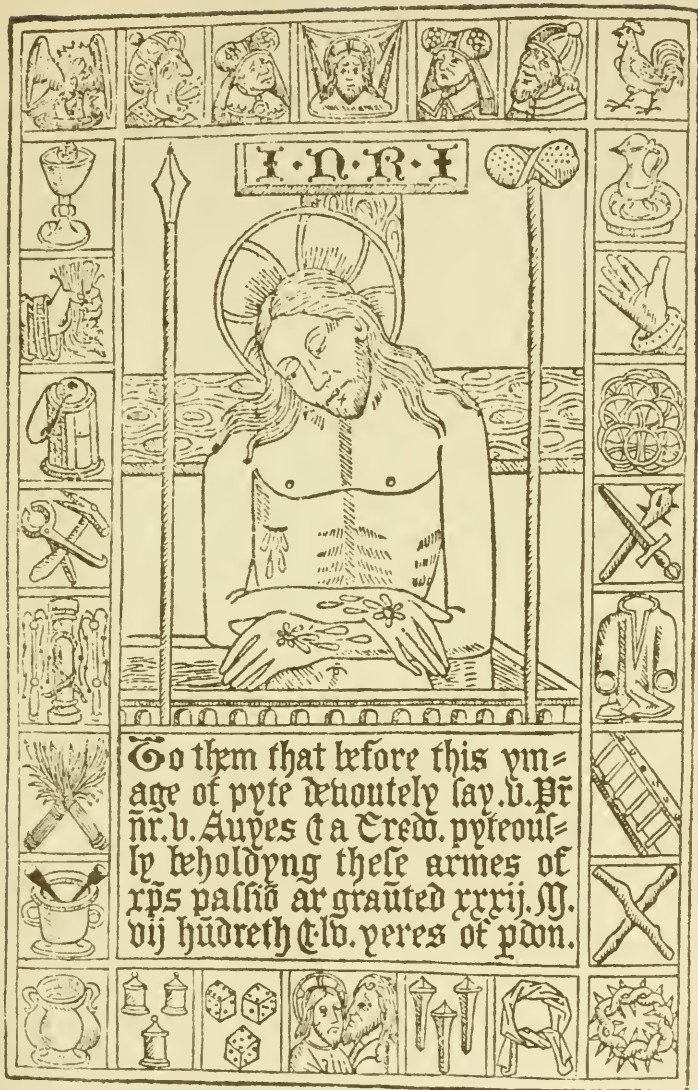 I·N·R·I
To them that before this ym=
age of pyte deuoutely say .v. Pr̄
nr̄.v. Auyes & a Credo. pyteous=
ly beholdyng these armes of
xp̄s passiō ar graūted xxxij. M.
vij hūdreth & .lv. yeres of pdon.